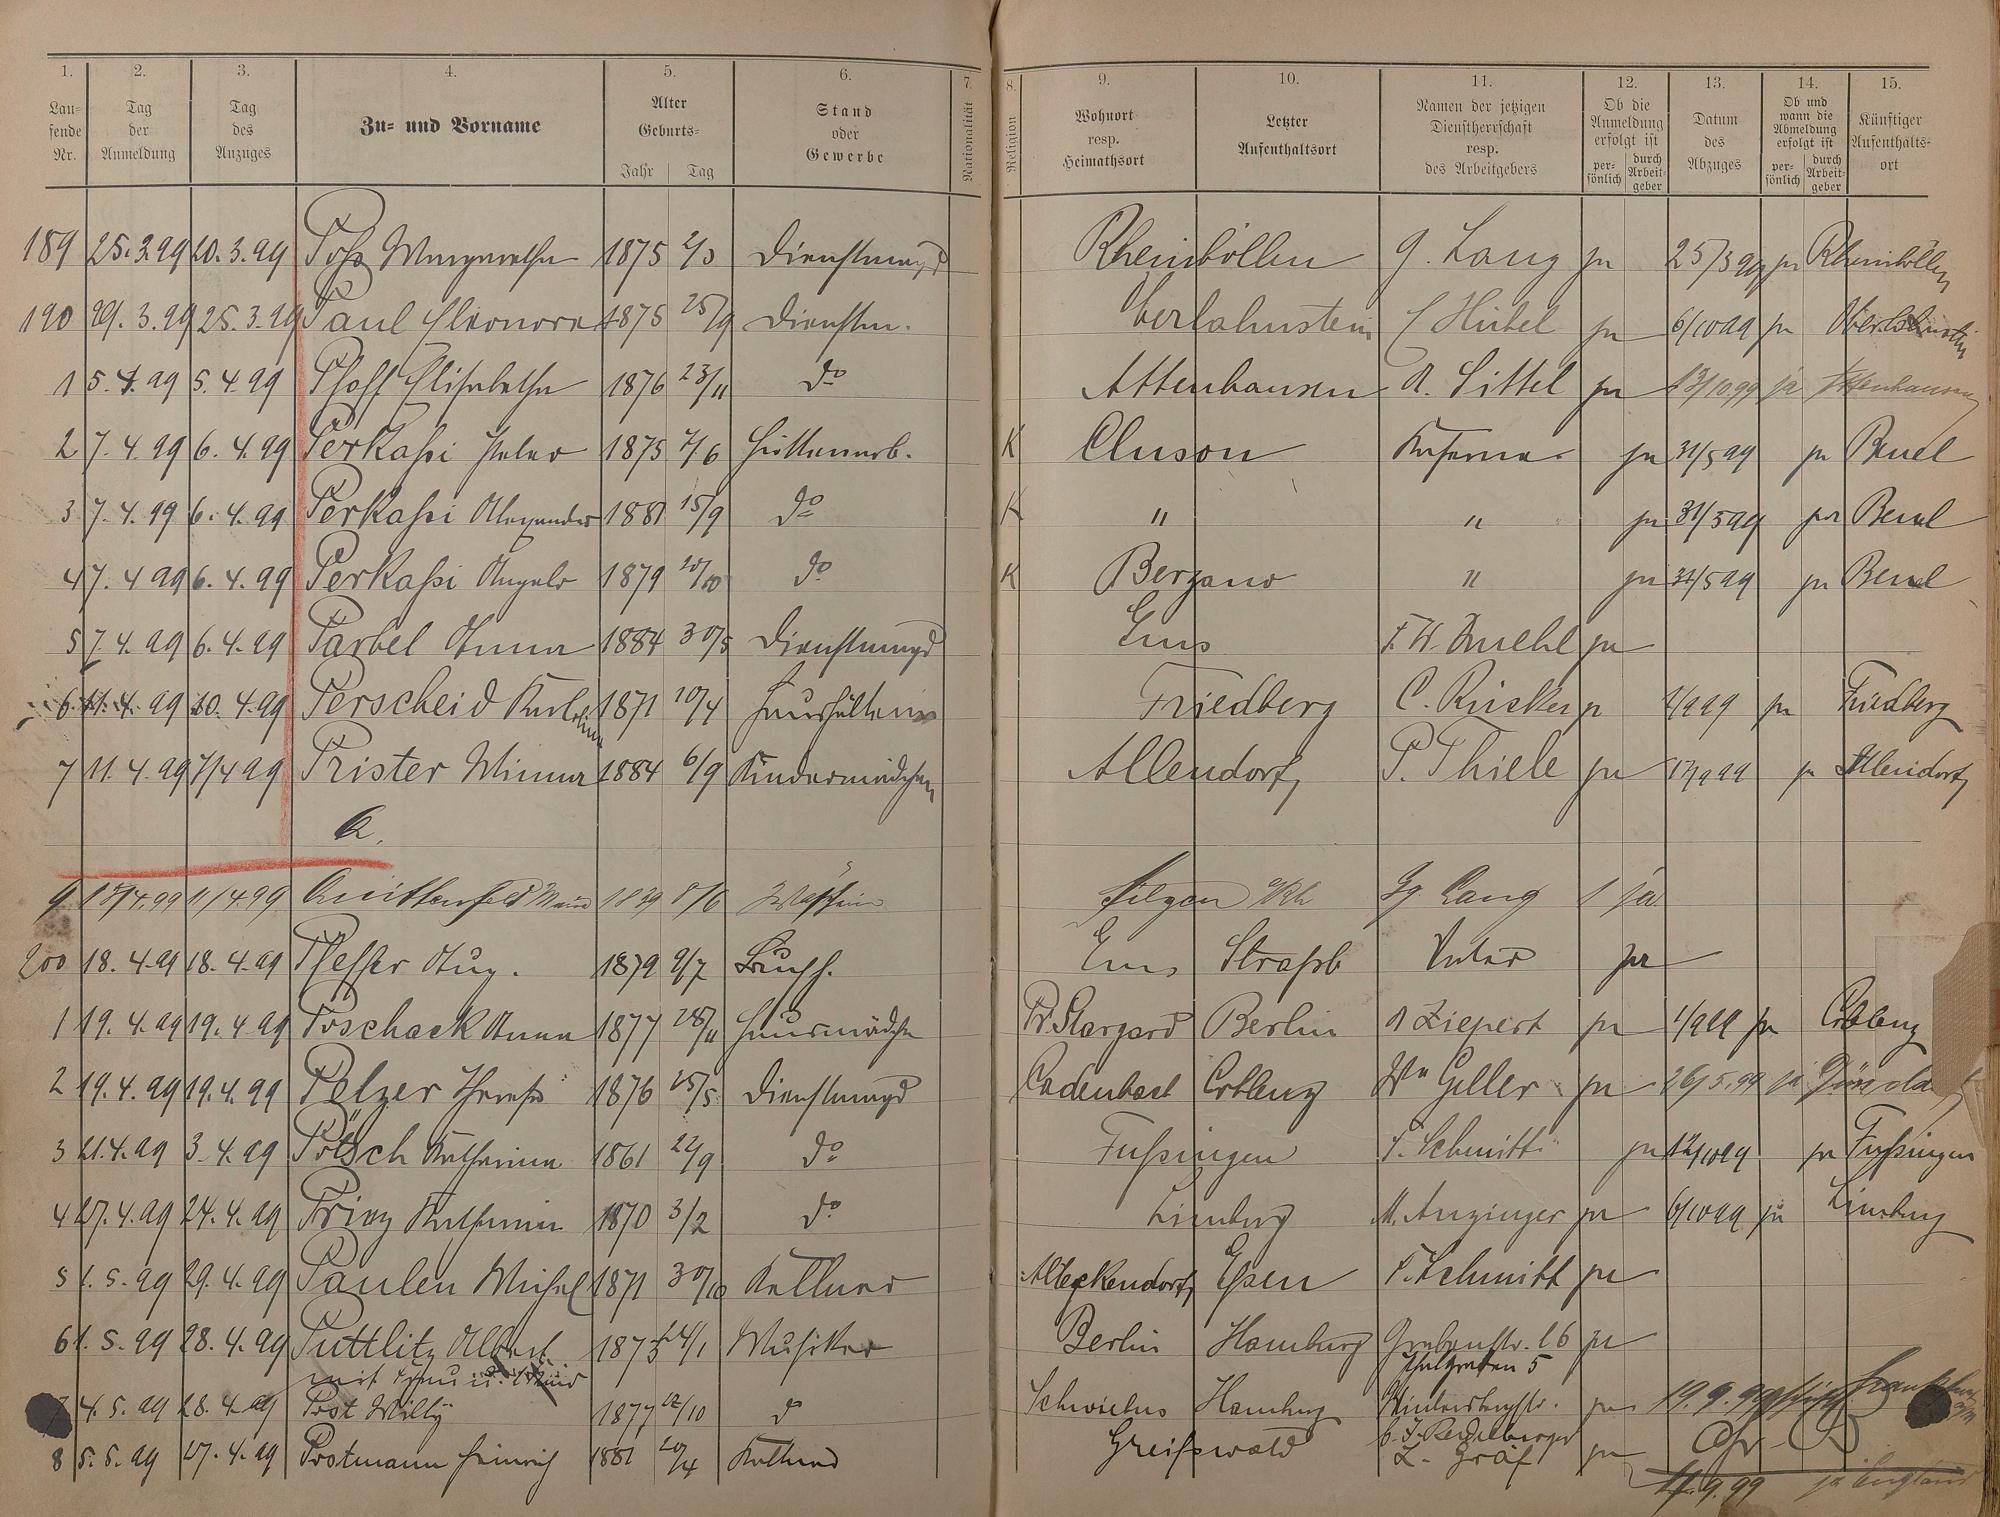 1. 2. 3. 4. 5. 6. 7. 8. 9. 10. 11. 12. 13. 14. 15.
Lau-fende Nr. Tag der Anmeldung Tag des Anzuges Zu- und Vorname Alter Geburts- Jahr Tag Stand oder Gewerbe Nationalität Religion Wohnort resp. Heimathsort Letzter Aufenthaltsort Namen der jetzigen Dienstherrschaft resp. des Arbeitgebers Ob die Anmeldung erfolgt ist per-sönlich durch Arbeit-geber Datum des Abzuges Ob und wann die Abmeldung erfolgt ist per-sönlich durch Arbeit-geber Künftiger Aufenthalts-ort
189 25.3.99 20.3.99 Margaretha 1875 2/3 Dienstmagd Rheinböllen G. Lang ja 25/3 99 ja Rheinböllen
190 29.3.99 25.3.99 Paul Eleonora 1875 25/9 Dienstm. Oberlahnstein ja 6/10 99 ja Oberlahnstein
1 5.4.99 5.4.99 Elisabetha 1876 23/11 do Attenhausen A. Sittel ja 13/10 99 ja Attenhausen
2 7.4.99 6.4.99 Perkaßi Peter 1875 7/6 Hüttenarb. K Cluson Kaserne ja 31/5 99 ja Beuel
3 7.4.99 6.4.99 Perkaßi Alexander 1881 15/9 do K " " ja 31/5 99 ja Beuel
4 7.4.99 6.4.99 Perkaßi Angelo 1879 do K Berzano " ja 31/5 99 ja Beuel
5 7.4.99 6.4.99 Parbel Anna 1884 30/5 Dienstmagd Ems F. W. ja
6 11.4.99 10.4.99 Perscheid Katharina 1871 10/4 Haushälterin Friedberg C. Rücker ja 1/9 99 ja Friedberg
7 11.4.99 7/4 99 Prister Minna 1884 6/9 Kindermädchen Allendorf P. Thiele ja 99 ja Allendorf
Q.
9 99 11/4 99 Quittenfeld 1839 8/6 Gg. Lang ja
200 18.4.99 18.4.99 Pfeffer Aug. 1879 9/7 Ems Straßb Vater ja
1 19.4.99 19.4.99 Poschack Anna 1877 28/11 Hausmädchen Pr. Stargard Berlin A Ziepert ja 1/9 99 ja Coblenz
2 19.4.99 19.4.99 Pelzer Therese 1876 25/5 Dienstmagd Cadenbach Coblenz Wn Geller ja 26/5.99 ja
3 21.4.99 3.4.99 Pötsch Katharina 1861 22/9 do Fußingen J. Schmitt ja 12/10 99 ja Fußingen
4 27.4.99 24.4.99 Prinz Katharina 1870 3/2 do Limburg M. Anzinger ja 6/10 99 ja Limburg
5 1.5.99 29.4.99 Paulen Michel 1871 30/10 Kellner Alteckendorf Essen F. Schmitt ja
6 1.5.99 28.4.99 Puttlitz Albert 1875 Musiker Berlin Hamburg Grabenstr. 16 ja
mit Frau u. Kind 5
7 4.5.99 28.4.99 Post Willy 1877 12/10 do Schwiebus Hamburg ja 19.9.99
8 5.5.99 27.4.99 Postmann Heinrich 1881 20/4 Kellner Greifswald Gräf ja
11.9.99 ja England